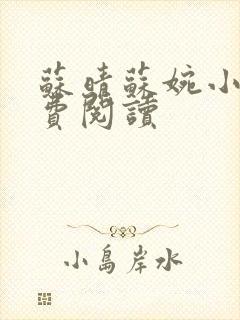 蘇晴蘇婉小
費閱讀
小島岸水